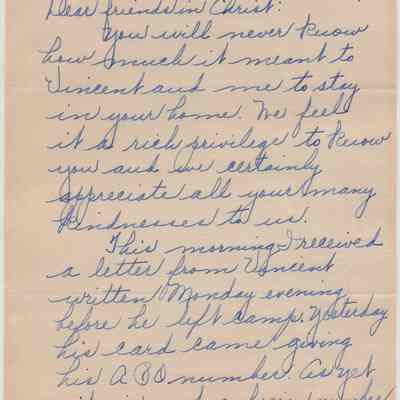 Dear friends in Christ:
You will never know
how much it meant to
Vincent and me to stay
in your home. We feel
it a rich privilege to know
you and we certainly
appreciate all your many
kindnesses to us.
This morning I received
a letter from Vincent
written Monday evening
before he left camp. Yesterday
his card came giving
his APO number. As yet